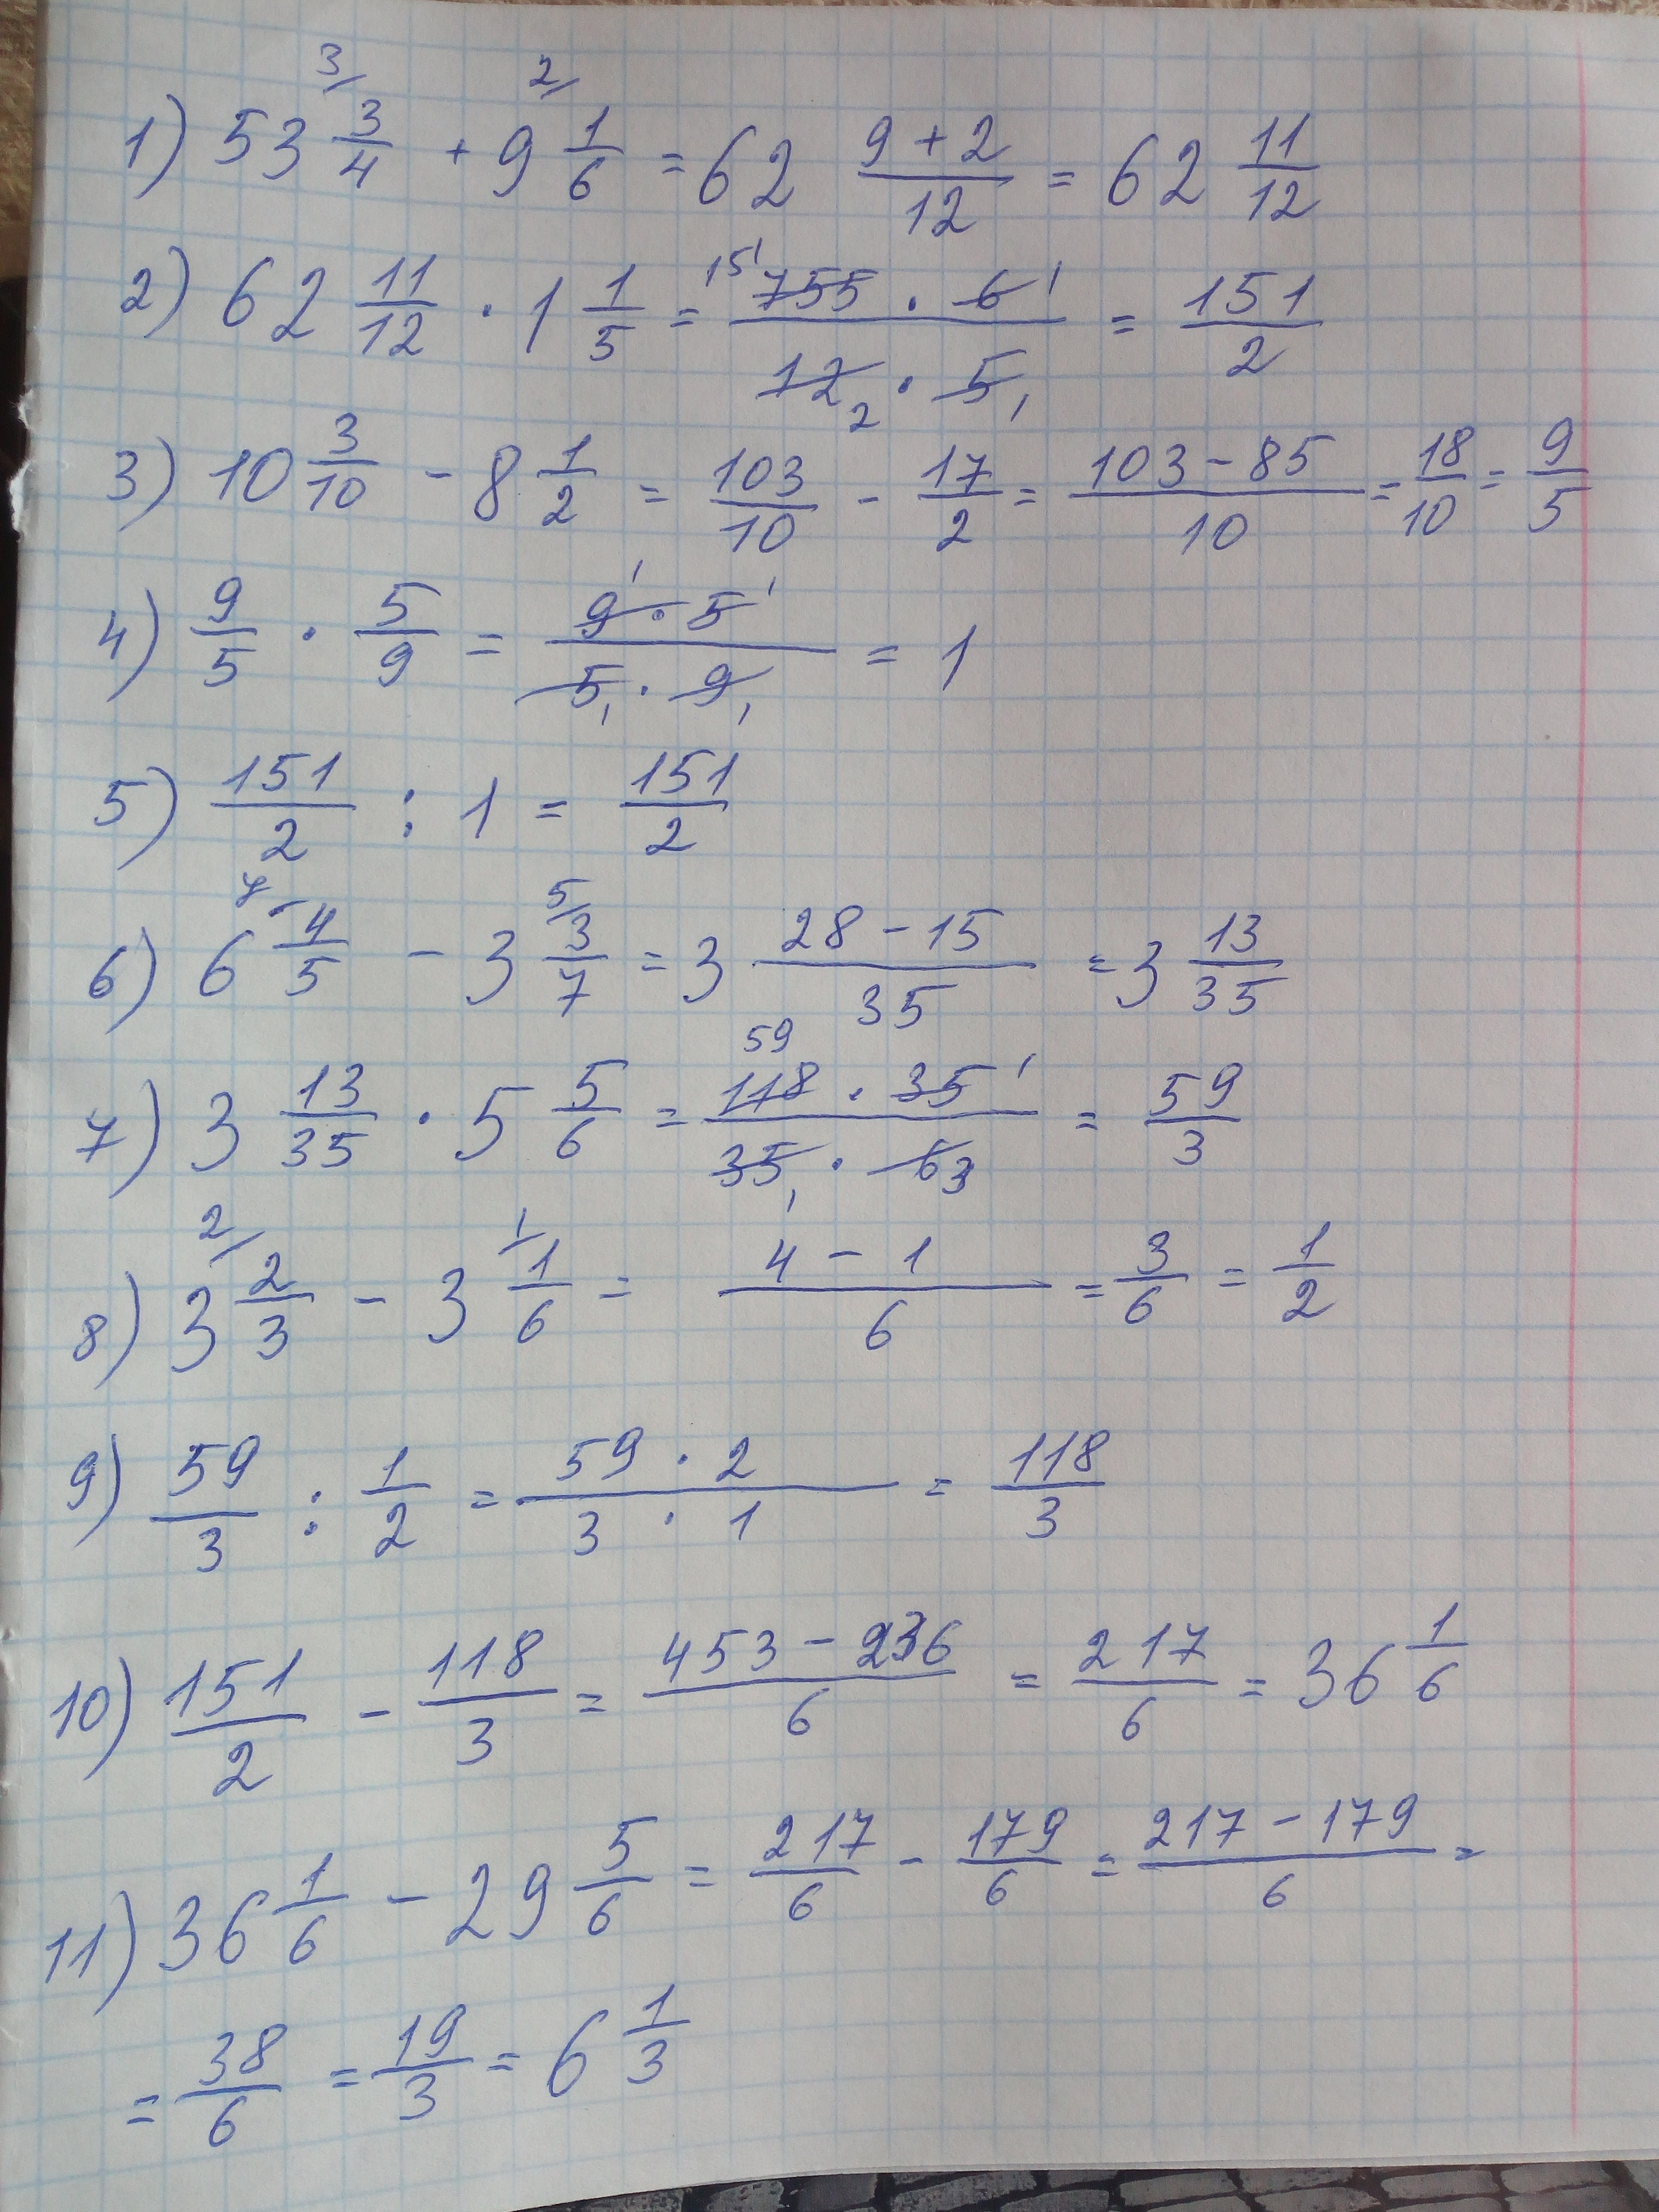 1) 53 3/4 + 9 1/6 = 62 (9 + 2)/12 = 62 11/12
2) 62 11/12 · 1 1/5 = (755 · 6)/(12 · 5) = 151/2
3) 10 3/10 - 8 1/2 = 103/10 - 17/2 = (103 - 85)/10 = 18/10 = 9/5
4) 9/5 · 5/9 = (9 · 5)/(5 · 9) = 1
5) 151/2 : 1 = 151/2
6) 6 4/5 - 3 3/7 = 3 (28 - 15)/35 = 3 13/35
7) 3 13/35 · 5 5/6 = (118 · 35)/(35 · 6) = 59/3
8) 3 2/3 - 3 1/6 = (4 - 1)/6 = 3/6 = 1/2
9) 59/3 : 1/2 = (59 · 2)/(3 · 1) = 118/3
10) 151/2 - 118/3 = (453 - 236)/6 = 217/6 = 36 1/6
11) 36 1/6 - 29 5/6 = 217/6 - 179/6 = (217 - 179)/6 =
= 38/6 = 19/3 = 6 1/3